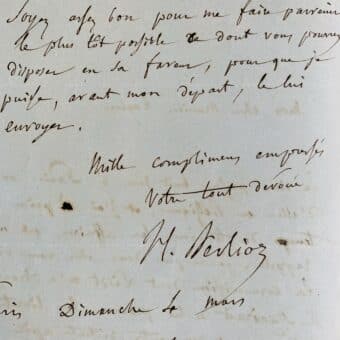 Soyez assez bon pour me faire parvenir
le plus tôt possible ce dont vous pourrez
disposer en sa faveur, pour que je
puisse, avant mon départ, le lui
envoyer.
Mille complimens empressés
Votre tout dévoué
H. Berlioz
Dimanche 4 mars